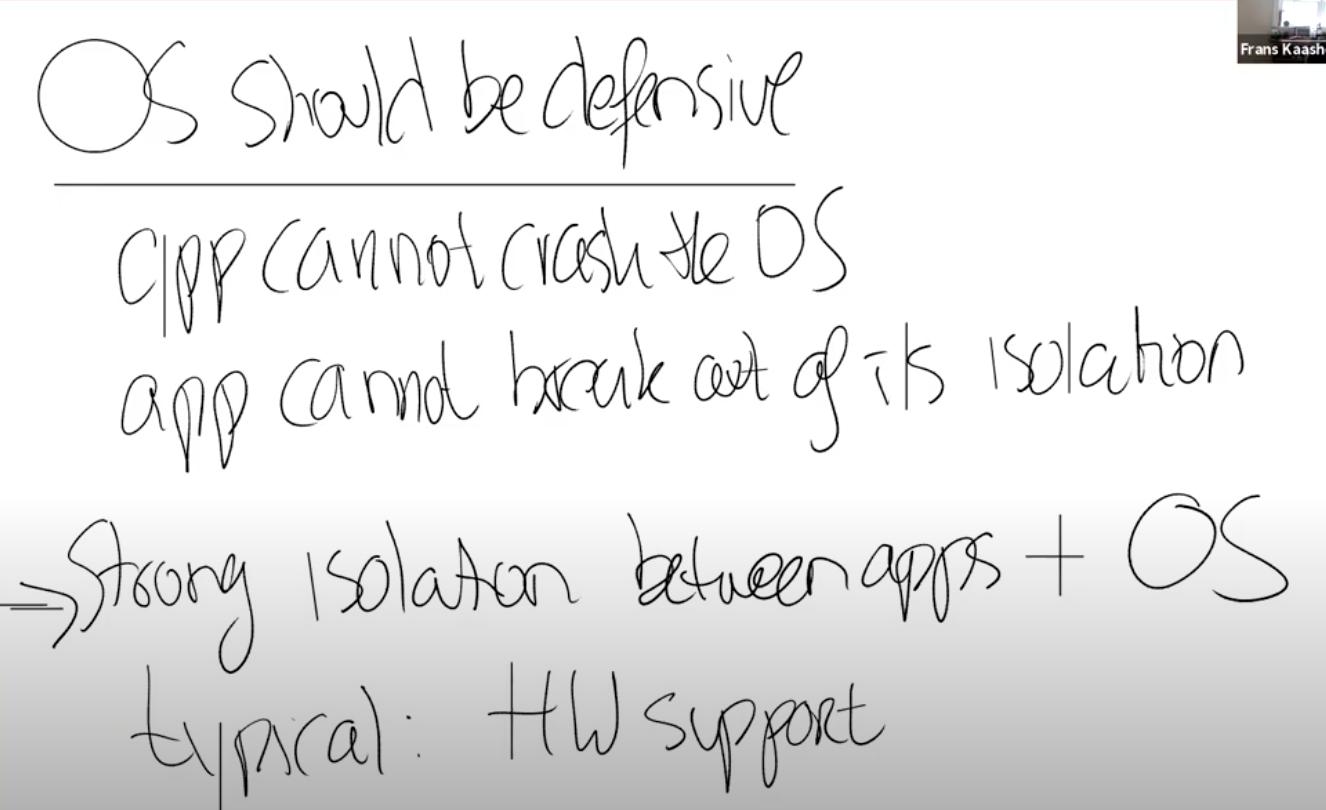 OS should be defensive
app cannot crash the OS
app cannot break out of its isolation
⇒ Strong isolation between apps + OS
typical: HW support
Frans Kaash